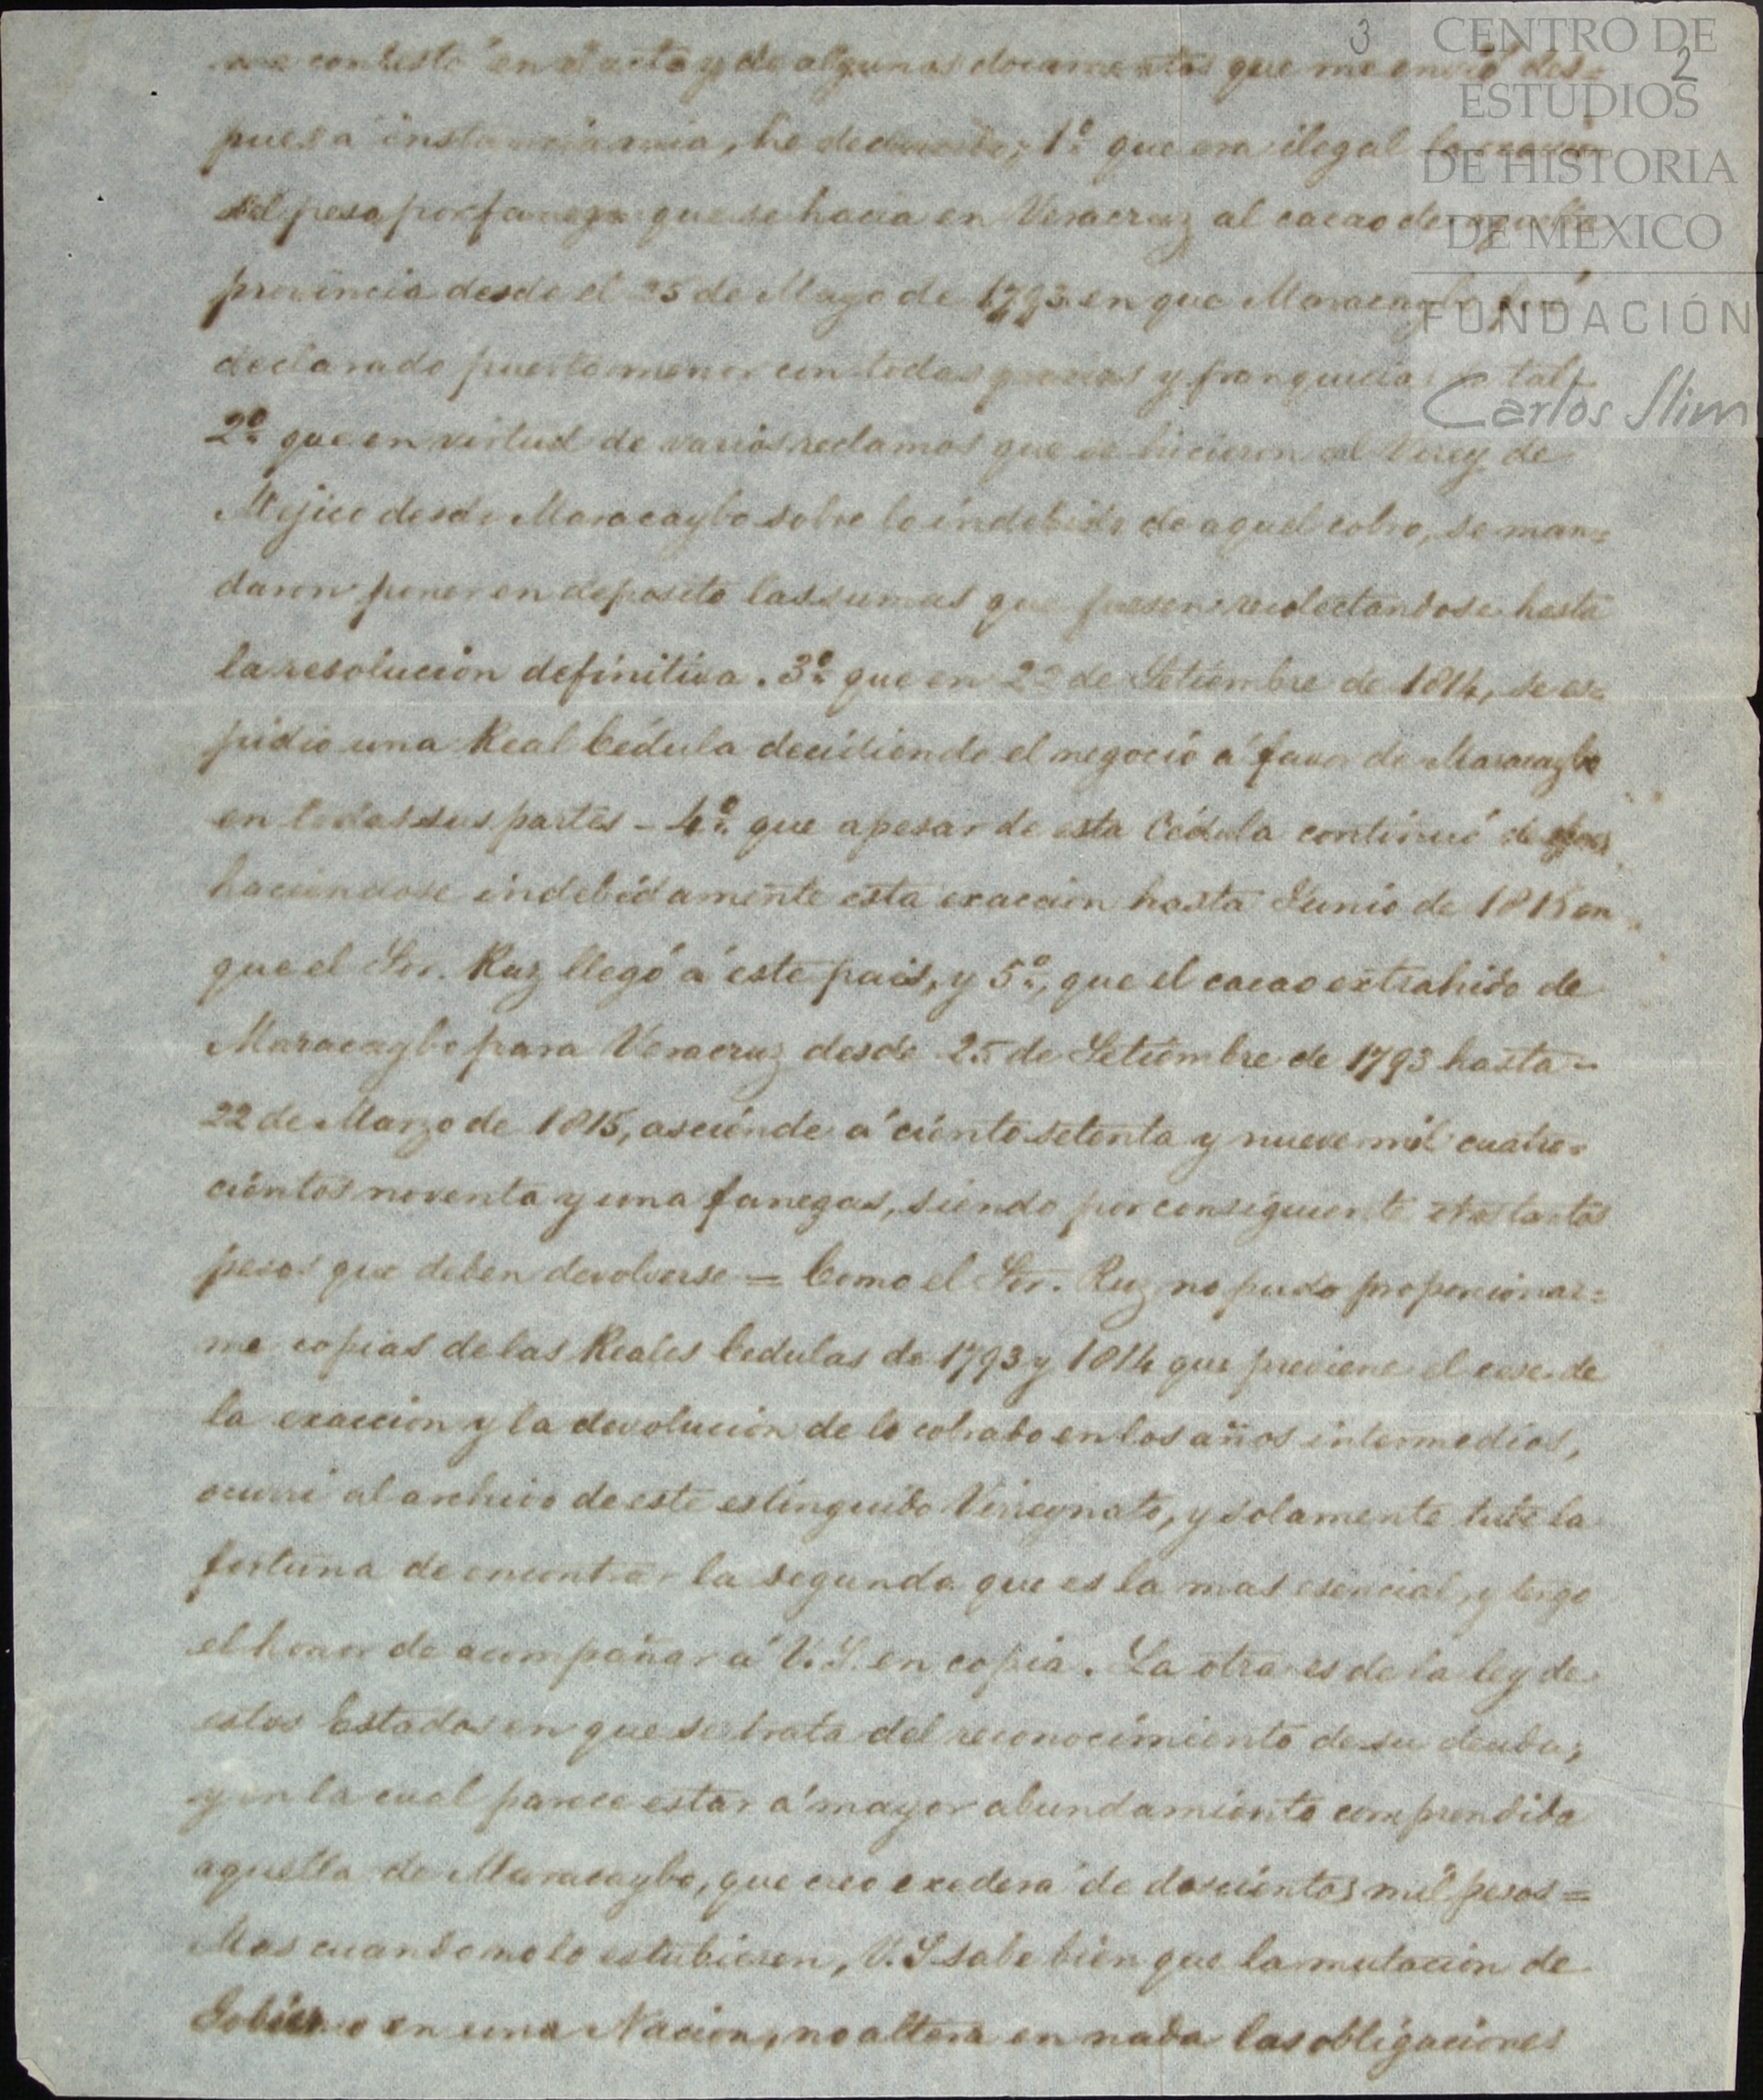 3
2
CENTRO DE
ESTUDIOS
DE HISTORIA
DE MÉXICO
FUNDACIÓN
Carlos Slim
me contestó en el acto y de algunos documentos que me envió des=
pues a instancia mia, he deducido; 1º que era ilegal la exaccion
del peso por fanega que se hacia en Veracruz al cacao de aquella
provincia desde el 25 de Mayo de 1793 en que Maracaybo fué
declarado puerto menor con todas gracias y franquicias tal
2º que en virtud de varios reclamos que se hicieron al Virey de
Mejico desde Maracaybo sobre lo indebido de aquel cobro, se man=
daron poner en deposito las sumas que fuesen recolectandose hasta
la resolucion definitiva. 3º que en 22 de Setiembre de 1814, se es=
pidió una Real Cédula decidiendo el negocio á favor de Maracaybo
en todas sus partes - 4º que apesar de esta Cédula continuó
haciendose indebidamente esta exaccion hasta Junio de 1815 en
que el Sor. Ruz llegó á este pais, y 5º, que el cacao extrahido de
Maracaybo para Veracruz desde 25 de Setiembre de 1793 hasta -
22 de Marzo de 1815, asciende á ciento setenta y nueve mil cuatro=
cientos noventa y una fanegas, siendo por consiguiente otros tantos
pesos que deben devolverse = Como el Sor. Ruz no pudo proporcionar=
me copias de las Reales Cedulas de 1793 y 1814 que previene el cese de
la exaccion y la devolucion de lo cobrado en los años intermedios,
ocurri al archivo de este estinguido Vireynato, y solamente tube la
fortuna de encontrar la segunda que es la mas esencial, y tengo
el honor de acompañar á V.S. en copia. La otra es de la ley de
estos Estados en que se trata del reconocimiento de su deuda,
y en la cual parece estar á mayor abundamiento comprendida
aquella de Maracaybo, que creo exederá de doscientos mil pesos =
Mas cuando no lo estubiesen, V.S. sabe bien que la mutacion de
Gobierno en una Nacion, no altera en nada las obligaciones